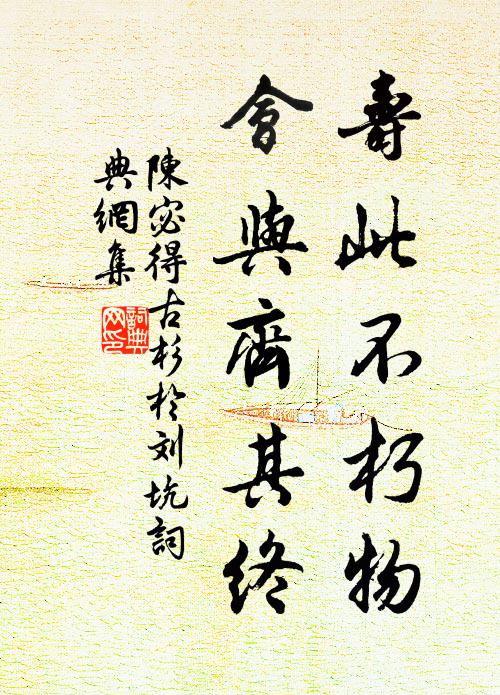 壽此不朽物
會與齊其終
陳宓得古杉於刘坑詞
典網集
詞典
网印